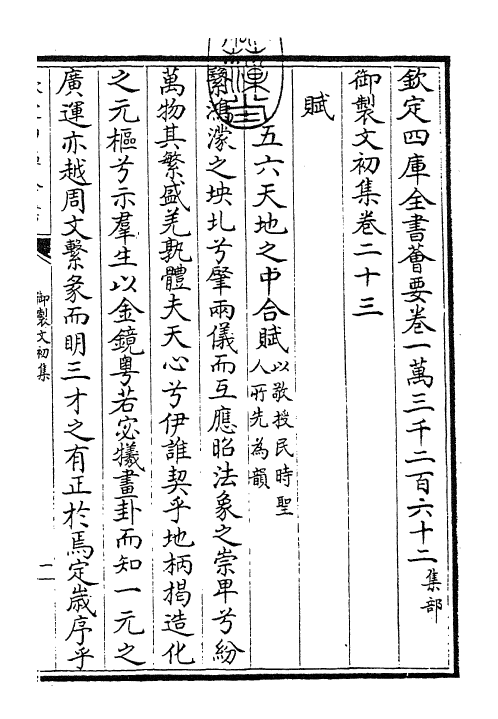 欽定四庫全書薈要卷一萬三千二百六十二集部
御製文初集卷二十三
賦
五六天地之中合賦以敬授民時聖
人所先為韻
繄鴻濛之坱圠兮肇兩儀而互應昭法象之崇卑兮紛
萬物其繁盛羌孰體夫天心兮伊誰契乎地柄揭造化
之元樞兮示羣生以金鏡粵若宓犧畫卦而知一元之
廣運亦越周文繫彖而明三才之有正於焉定歲序乎
御製文初集
一